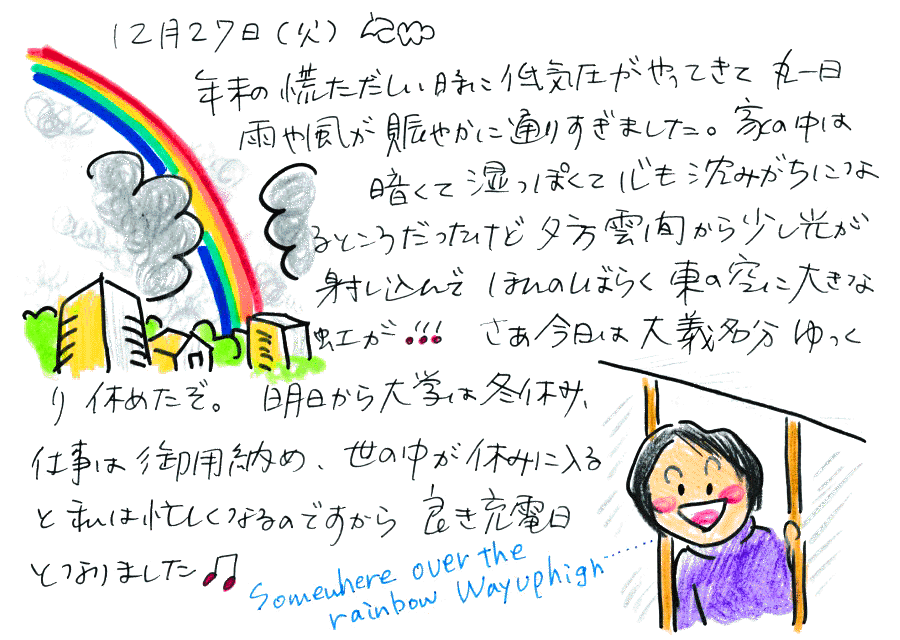 12月27日(火)
年末の慌ただしい時に低気圧がやってきて 丸一日
雨や風が賑やかに通りすぎました。家の中は
暗くて湿っぽくて心も沈みがちにな
るところだったけど夕方雲間から少し光が
射し込んで ほんのしばらく東の空に大きな
虹が!!! さあ今日は大義名分 ゆっく
り休めたぞ。 明日から大学は冬休み、
仕事は御用納め、世の中が休みに入る
と私は忙しくなるのですから 良き充電日
となりました♫
Somewhere over the
rainbow Wayuphigh